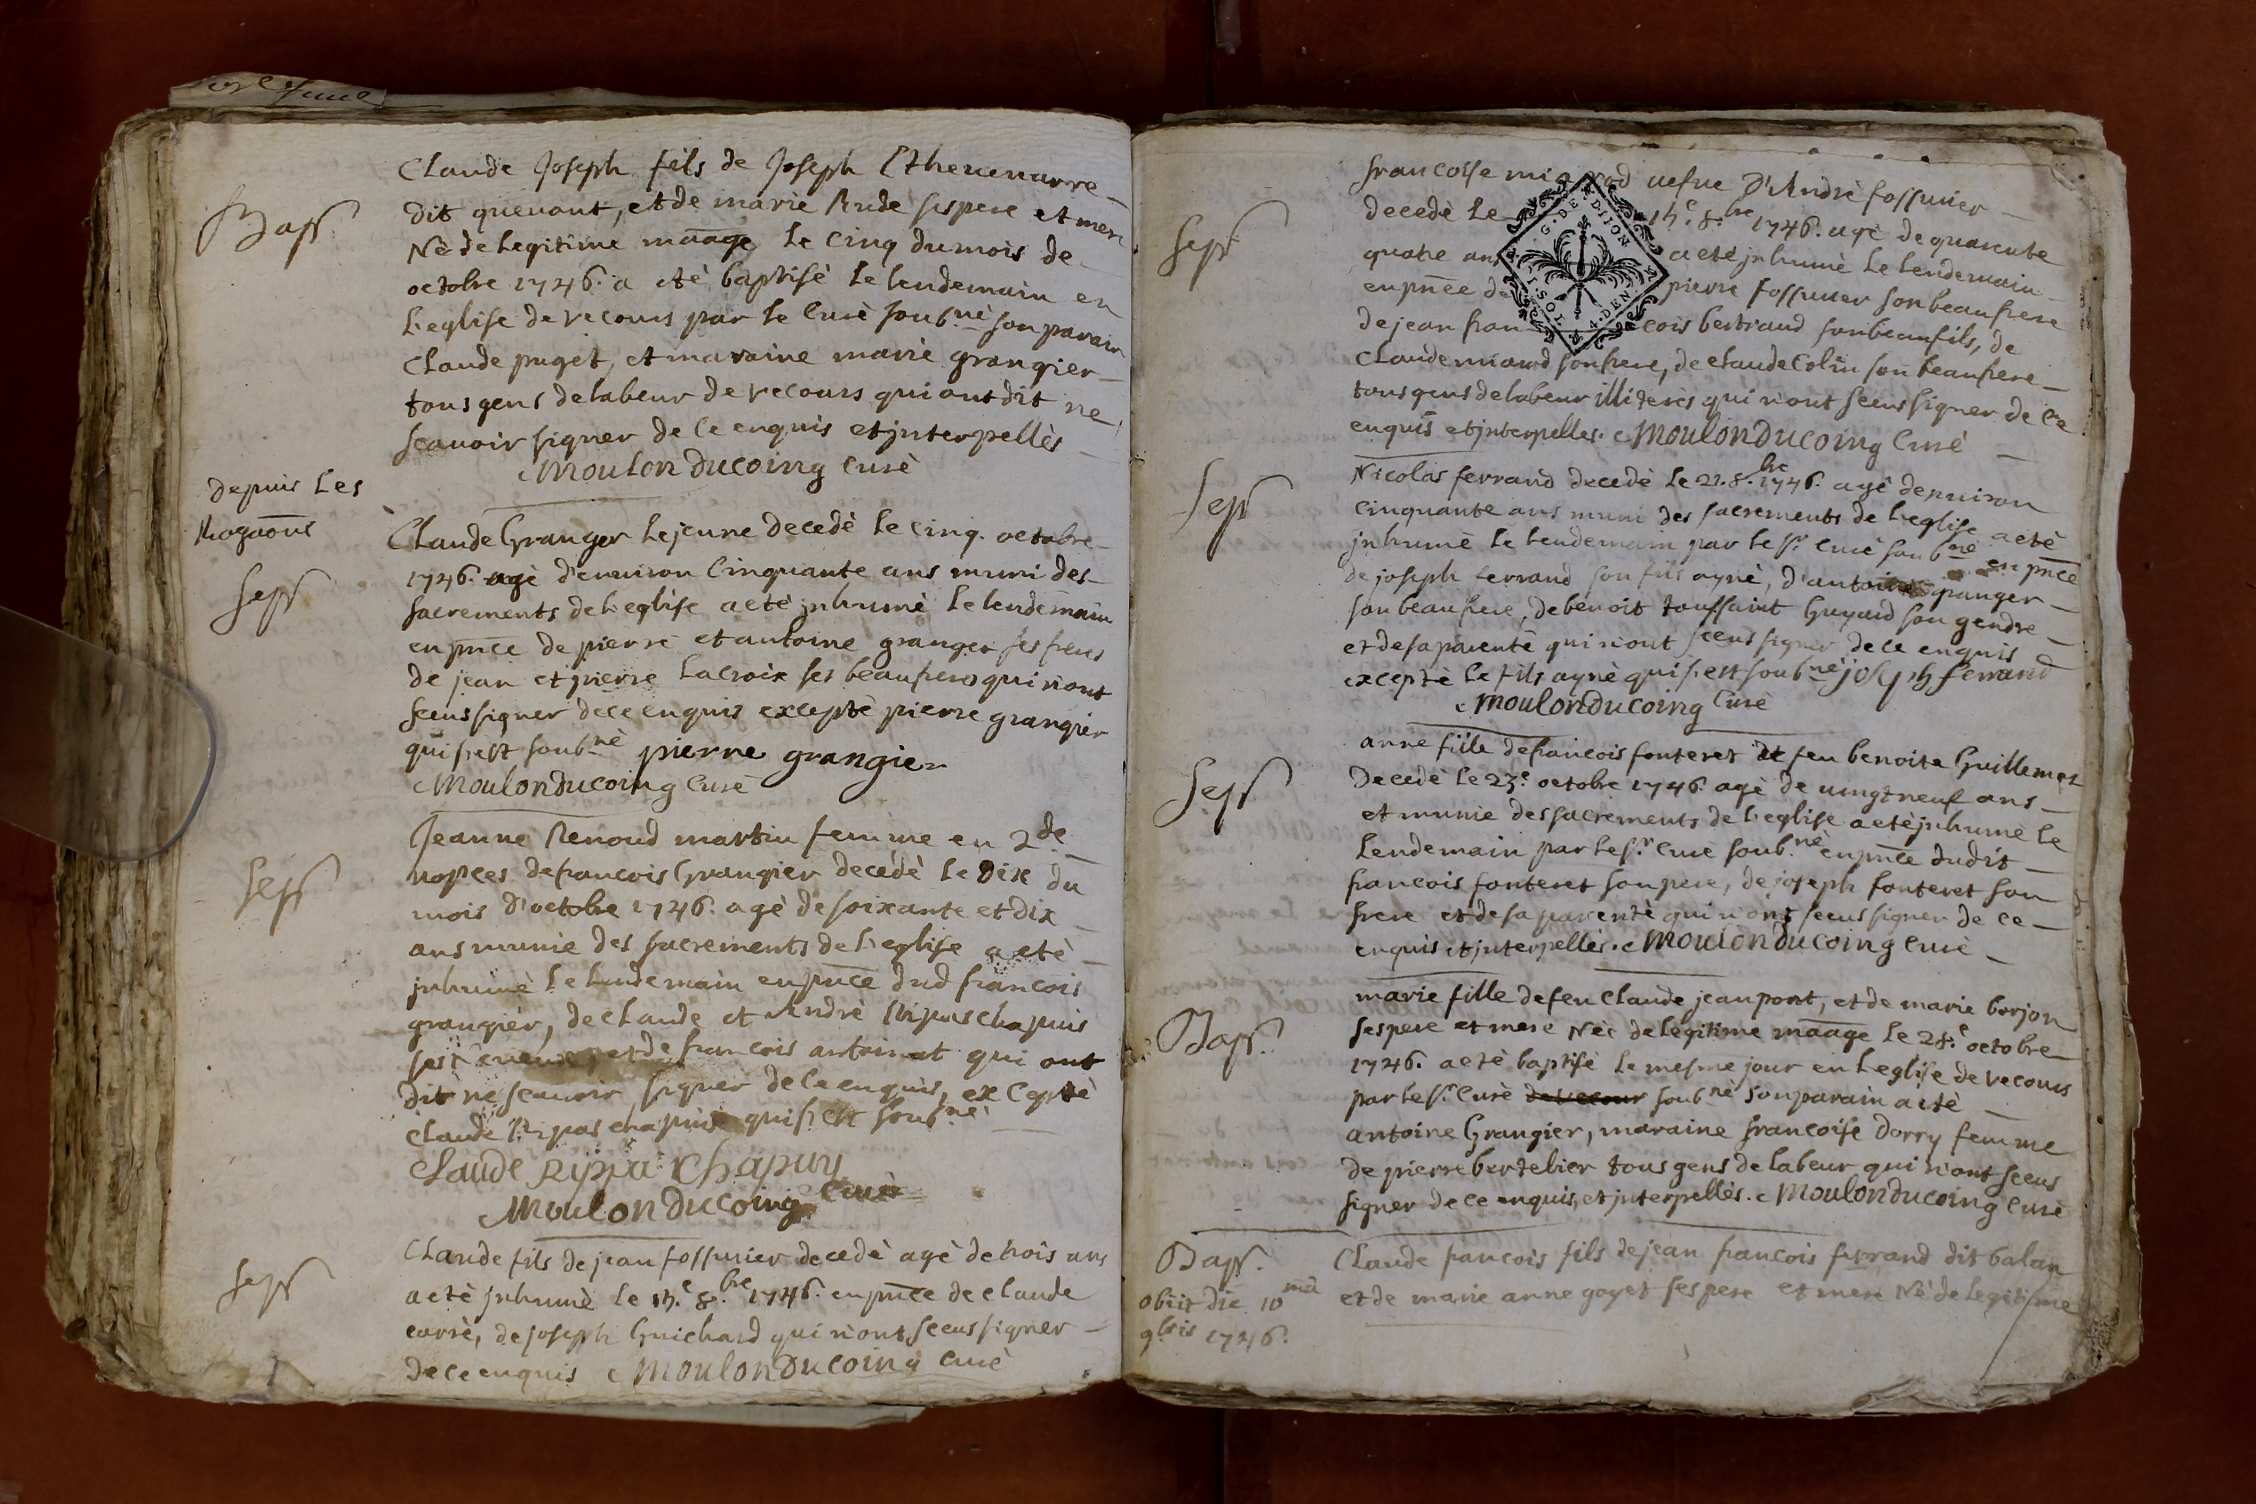 Bapt.
Claude Joseph fils de Joseph Ethevenarre
dit quenant, et de marie Rude ses pere et mere
Nè de legitime maage le cinq du mois de
octobre 1746. a etè baptisè le lendemain en
l'eglise de recours par le curè soub.nè son parain
Claude puget, et maraine marie grangier
tous gens de labeur de recours qui ont dit ne
scavoir signer de ce enquis et jnterpellès
Moulon Ducoing curè
depuis les
Rogaons
Sep.
Claude Granger le jeune decedè le cinq octobre
1746. agè d'environ cinquante ans muni des
sacrements de l'eglise a etè jnhumè le lendemain
en pnce de pierre et antoine granger ses freres
de jean et pierre Lacroix ses beaufreres qui n'ont
sceus signer de ce enquis exceptè pierre grangier
qui s'est soub.nè pierre grangier
Moulon Ducoing curè
Sep.
Jeanne Renoud martin femme en 2de
nopces de francois Grangier decedè le Dix du
mois d'octobre 1746. agè de soixante et dix
ans munie des sacrements de l'eglise a etè
jnhumè le lendemain en pnce dud francois
grangier, de claude et Andrè Ripas chapuis
ses et de francois antoinat qui ont
dit ne scavoir signer de ce enquis, exceptè
claude Ripas chapuis qui s'est soub.nè
Claude Rippa Chapuy
Moulon Ducoing curè
Sep.
Claude fils de jean fossurier decedè agè de trois ans
a etè jnhumè le 17.e 8.bre 1746. en pnce de claude
carrè, de joseph Guichard qui n'ont sceus signer
de ce enquis Moulon Ducoing curè
Sep.
francoise miarod vefue D'Andrè fossurier
decedè le 17.e 8.bre 1746. agè de quarente
quatre ans a etè jnhumè le lendemain
en pnce de pierre fossurier son beaufrere
de jean francois bertraud son beaufils, de
Claude miarod son frere, de claude Colin son beaufrere
tous gens de labeur illiterès qui n'ont sceus signer de ce
enquis et jnterpelles. Moulon Ducoing Curè
G. DE. DIJON
4. DEN.
Sep.
Nicolas ferrand decedè le 21. 8.bre 1746. agè d'environ
cinquante ans muni des sacrements de l'eglise a etè
jnhumè le lendemain par le s.r curè soub.nè en pnce
de joseph ferrand son fils aynè, d'antoine panger
son beaufrere, de benoit toussaint Guyard son gendre
et de sa parentè qui n'ont sceus signer de ce enquis
exceptè le fils aynè qui s'est soub.nè joseph ferrand
Moulon Ducoing Curè
Sep.
anne fille de francois fonteret et feu benoite Guillemot
Decedè le 23.e octobre 1746. agè de vingt neuf ans
et munie des sacrements de l'eglise a etè jnhumè le
lendemain par le s.r curè soub.nè en pnce dudit
francois fonteret son pere, de joseph fonteret son
frere et de sa parentè qui n'ont sceus signer de ce
enquis et jnterpellès. Moulon Ducoing curè
Bapt.
marie fille de feu Claude jeanpont, et de marie borjon
ses pere et mere Nèe de legitime maage le 28.e octobre
1746. a etè baptisè le mesme jour en l'eglise de recours
par le s.r curè soub.nè son parain a etè
antoine Grangier, maraine francoise Dorry femme
de pierre bertelier tous gens de labeur qui n'ont sceus
signer de ce enquis, et jnterpellès. Moulon Ducoing curè
Bapt.
obiit die 10ma
9bris 1746.
Claude francois fils de jean francois ferrand dit balan
et de marie anne goyet ses pere et mere Nè de legitime